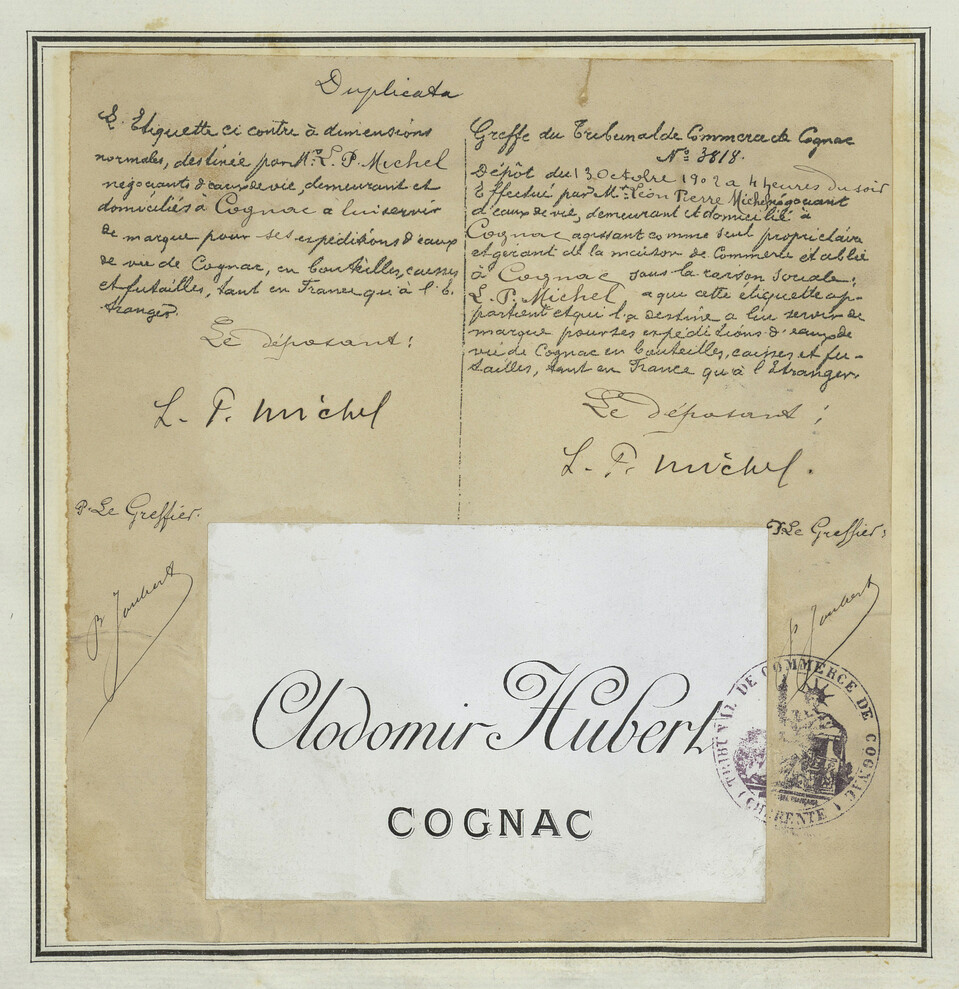 Duplicata
L'Etiquette ci contre à dimensions
normales, destinée par Mr. L. P. Michel
négociants d'eaux de vie, demeurant et
domiciliés à Cognac a lui servir
de marque pour ses expéditions d'eaux
de vie de Cognac, en bouteilles, caisses
et futailles, tant en France qu'à l'E-
tranger.
Le déposant:
L. P. Michel
P. Le Greffier.
P Joubert
Greffe du Tribunal de Commerce de Cognac
No. 3818.
Dépôt du 13 Octobre 1902 a 4 heures du soir
Effectué par Mr. Léon Pierre Michel négociant
d'eaux de vie, demeurant et domicilié à
Cognac agissant comme seul propriétaire
et gérant de la maison de Commerce établie
à Cognac sous la raison sociale:
L. P. Michel a que cette étiquette ap-
partient et qu'il a destine a lui servir de
marque pour ses expéditions d'eaux de
vie de Cognac en bouteilles, caisses et fu-
tailles, tant en France qu'à l'Etranger.
Le déposant:
L. P. Michel.
P. Le Greffier:
P Joubert
Clodomir Hubert
COGNAC
TRIBUNAL DE COMMERCE DE COGNAC
(CHARENTE)